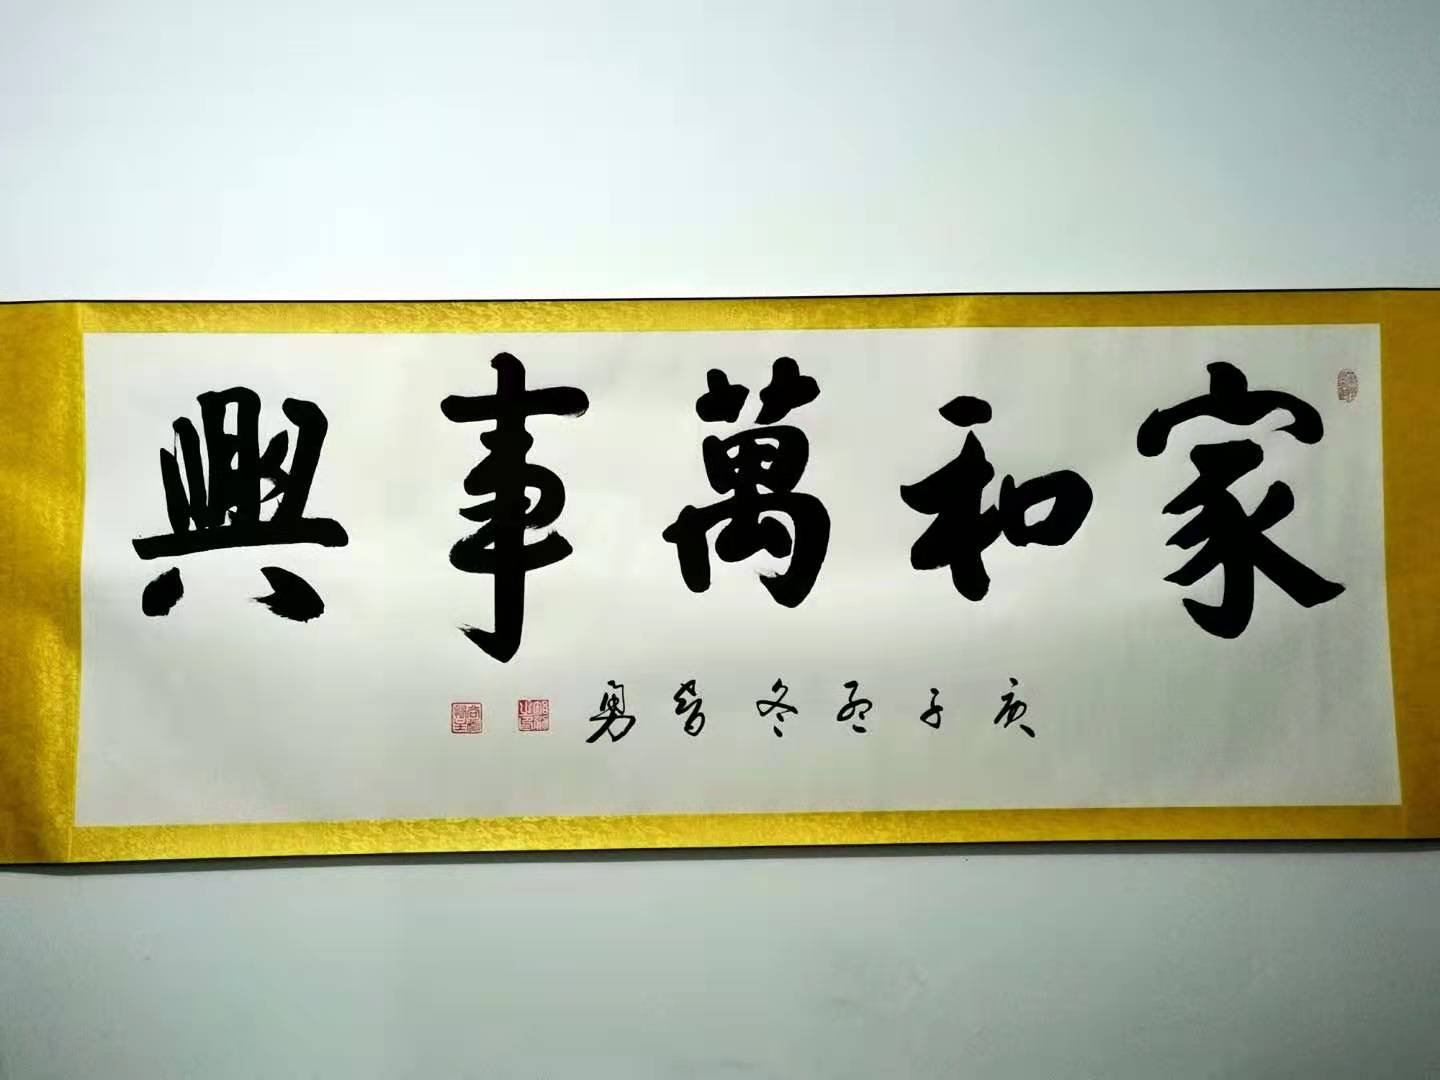 家和萬事興
庚子孟冬智勇